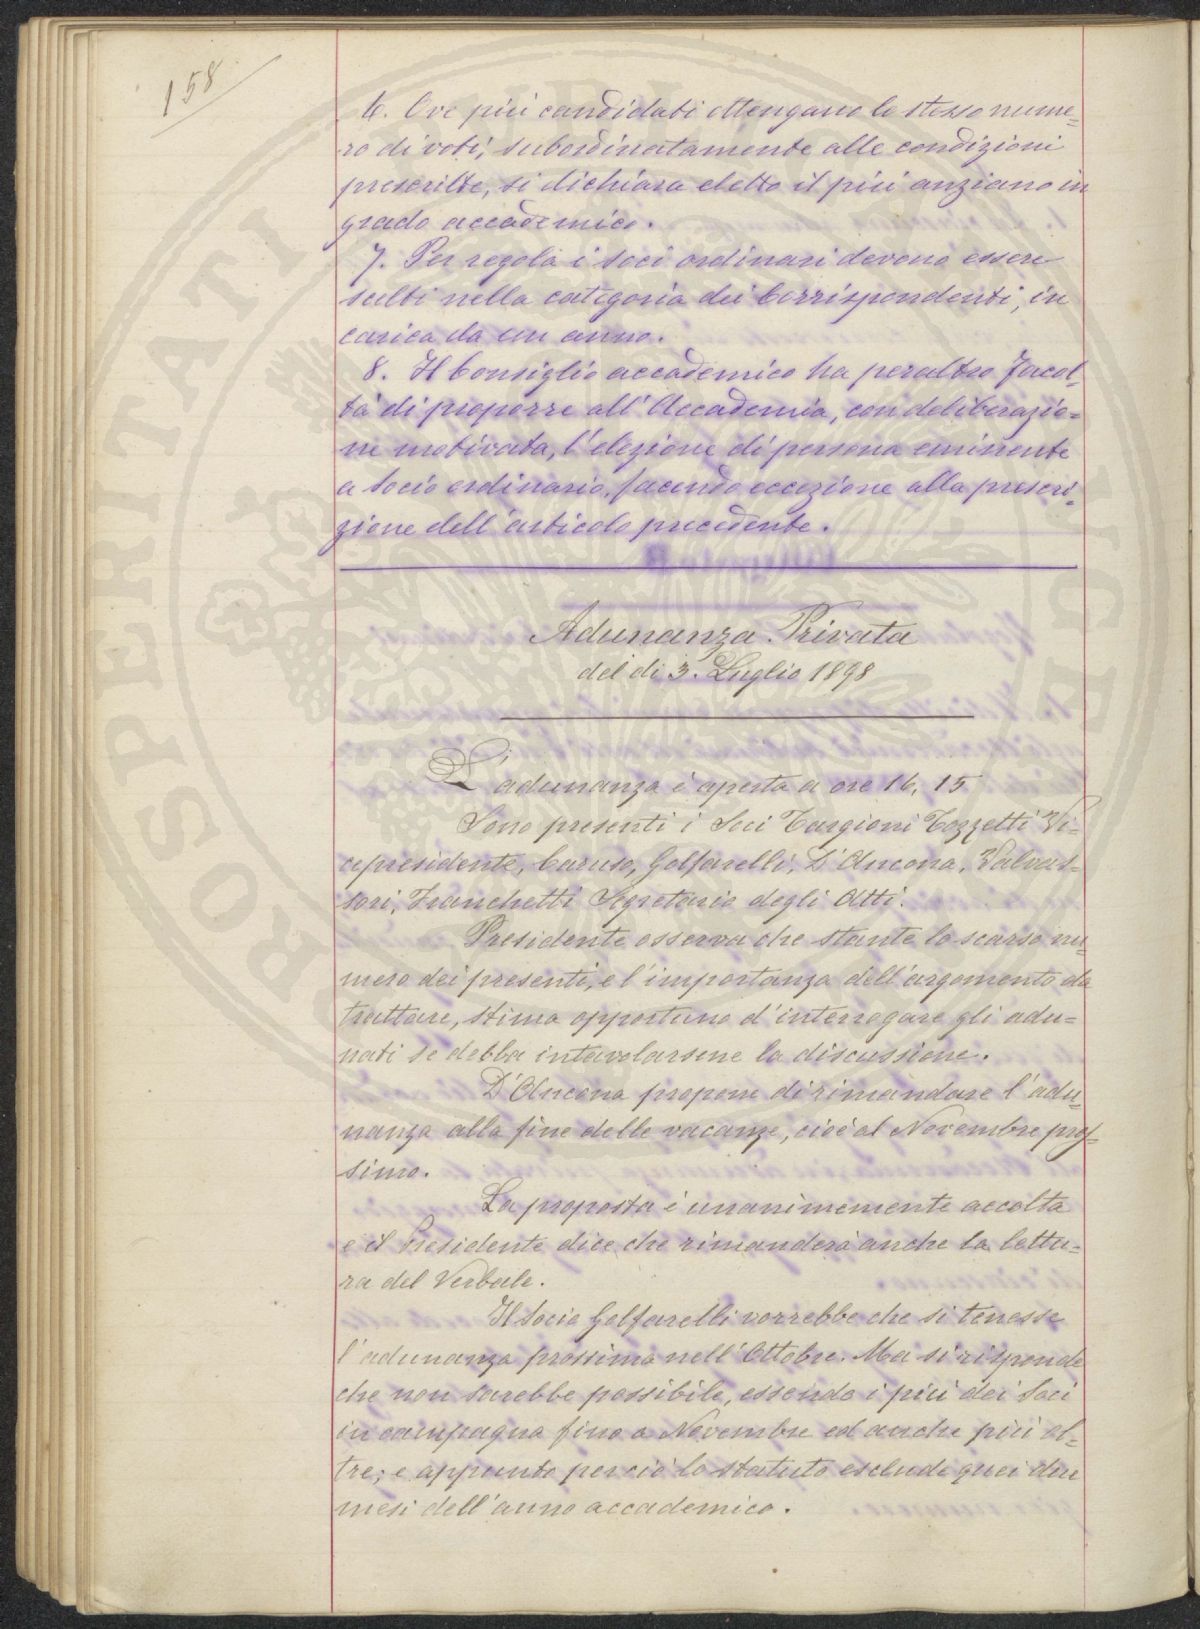 158
6. Ove più candidati ottengano lo stesso nume=
ro di voti, subordinatamente alle condizioni
prescritte, si dichiara eletto il più anziano in
grado accademico.
7. Per regola i Soci ordinari devono essere
scelti nella categoria dei Corrispondenti, in
carica da un anno.
8. Il Consiglio accademico ha peraltro facol=
tà di proporre all'Accademia, con deliberazio=
ne motivata, l'elezione di persona eminente
a Socio ordinario, facendo eccezione alla prescri=
zione dell'articolo precedente.
Adunanza Privata
del dì 3. Luglio 1898
L'adunanza è aperta a ore 16,15
Sono presenti i Soci Targioni Tozzetti Vi=
cepresidente, Caruso, Golfarelli, D'Ancona, Valvas=
sori, Franchetti Segretario degli Atti.
Presidente osserva che stante lo scarso nu=
mero dei presenti, e l'importanza dell'argomento da
trattare, stima opportuno d'interrogare gli adu=
nati se debba intavolarsene la discussione.
D'Ancona propone di rimandare l'adu=
nanza alla fine delle vacanze, cioè al Novembre pros=
simo.
La proposta è unanimemente accolta
e il Presidente dice che rimanderà anche la lettu=
ra del Verbale.
Il Socio Golfarelli vorrebbe che si tenesse
l'adunanza prossima nell'Ottobre. Ma si risponde
che non sarebbe possibile, essendo i più dei Soci
in campagna fino a Novembre ed anche più ol=
tre; e appunto perciò lo Statuto esclude quei due
mesi dell'anno accademico.
PROSPERITATI PUBLICAE